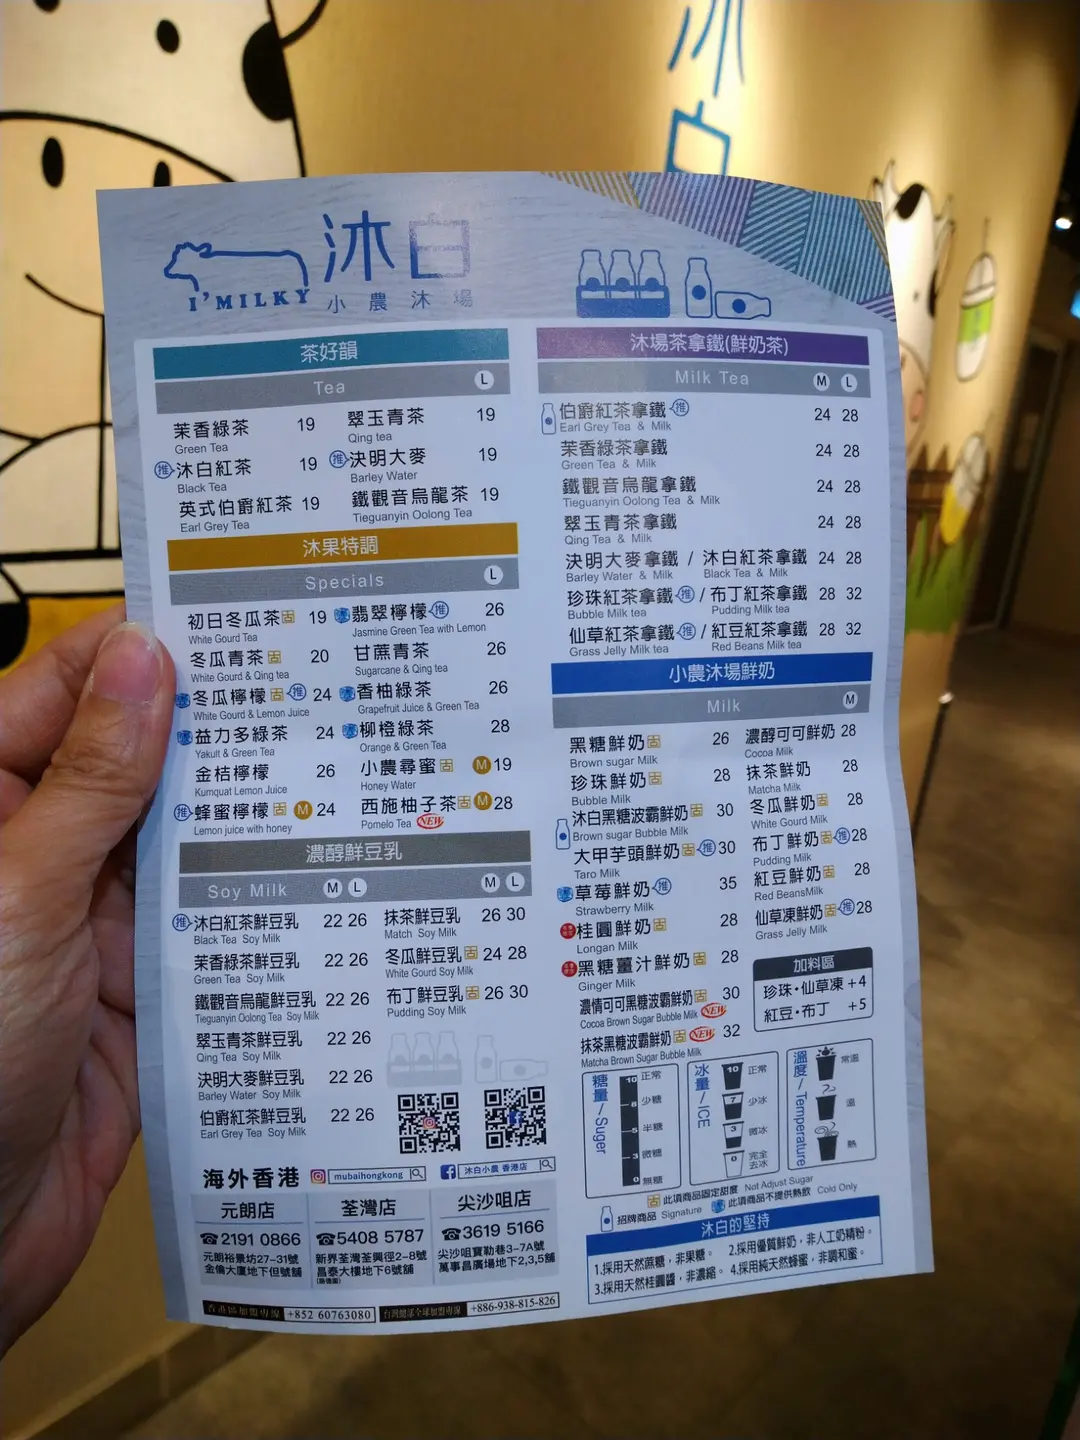 沐白
沐白
I'MILKY
小農沐場
茶好韻
Tea L
茉香綠茶 19
Green Tea
翠玉青茶 19
Qing tea
推 沐白紅茶 19
Black Tea
推 決明大麥 19
Barley Water
英式伯爵紅茶 19
Earl Grey Tea
鐵觀音烏龍茶 19
Tieguanyin Oolong Tea
沐果特調
Specials L
初日冬瓜茶 古 19
White Gourd Tea
翡翠檸檬 推 26
Jasmine Green Tea with Lemon
冬瓜青茶 古 20
White Gourd & Qing tea
甘蔗青茶 26
Sugarcane & Qing tea
冬瓜檸檬 古 推 24
White Gourd & Lemon Juice
香柚綠茶 26
Grapefruit Juice & Green Tea
益力多綠茶 24
Yakult & Green Tea
柳橙綠茶 28
Orange & Green Tea
金桔檸檬 26
Kumquat Lemon Juice
小農尋蜜 古 M 19
Honey Water
推 蜂蜜檸檬 古 M 24
Lemon juice with honey
西施柚子茶 古 M 28
Pomelo Tea NEW
濃醇鮮豆乳
Soy Milk M L M L
推 沐白紅茶鮮豆乳 22 26
Black Tea Soy Milk
抹茶鮮豆乳 26 30
Match Soy Milk
茉香綠茶鮮豆乳 22 26
Green Tea Soy Milk
冬瓜鮮豆乳 古 24 28
White Gourd Soy Milk
鐵觀音烏龍鮮豆乳 22 26
Tieguanyin Oolong Tea Soy Milk
布丁鮮豆乳 古 26 30
Pudding Soy Milk
翠玉青茶鮮豆乳 22 26
Qing Tea Soy Milk
決明大麥鮮豆乳 22 26
Barley Water Soy Milk
伯爵紅茶鮮豆乳 22 26
Earl Grey Tea Soy Milk
海外香港 mubaihongkong 沐白小農 香港店
元朗店
☎2191 0866
元朗裕景坊27-31號
金倫大廈地下但號舖
荃灣店
☎5408 5787
新界荃灣荃興徑2-8號
昌泰大樓地下6號舖
尖沙咀店
☎3619 5166
尖沙咀寶勒巷3-7A號
萬事昌廣場地下2,3,5舖
香港區加盟專線 +852 60763080 台灣總部全球加盟專線 +886-938-815-826
沐場茶拿鐵(鮮奶茶)
Milk Tea M L
伯爵紅茶拿鐵 推 24 28
Earl Grey Tea & Milk
茉香綠茶拿鐵 24 28
Green Tea & Milk
鐵觀音烏龍拿鐵 24 28
Tieguanyin Oolong Tea & Milk
翠玉青茶拿鐵 24 28
Qing Tea & Milk
決明大麥拿鐵 / 沐白紅茶拿鐵 24 28
Barley Water & Milk Black Tea & Milk
珍珠紅茶拿鐵 推 / 布丁紅茶拿鐵 28 32
Bubble Milk tea Pudding Milk tea
仙草紅茶拿鐵 推 / 紅豆紅茶拿鐵 28 32
Grass Jelly Milk tea Red Beans Milk tea
小農沐場鮮奶
Milk M
黑糖鮮奶 古 26
Brown sugar Milk
濃醇可可鮮奶 28
Cocoa Milk
珍珠鮮奶 古 28
Bubble Milk
抹茶鮮奶 28
Matcha Milk
沐白黑糖波霸鮮奶 古 30
Brown sugar Bubble Milk
冬瓜鮮奶 古 28
White Gourd Milk
大甲芋頭鮮奶 古 推 30
Taro Milk
布丁鮮奶 古 推 28
Pudding Milk
草莓鮮奶 推 35
Strawberry Milk
紅豆鮮奶 古 28
Red BeansMilk
桂圓鮮奶 古 28
Longan Milk
仙草凍鮮奶 古 推 28
Grass Jelly Milk
黑糖薑汁鮮奶 古 28
Ginger Milk
濃情可可黑糖波霸鮮奶 古 30
Cocoa Brown Sugar Bubble Milk NEW
抹茶黑糖波霸鮮奶 古 NEW 32
Matcha Brown Sugar Bubble Milk
加料區
珍珠・仙草凍 +4
紅豆・布丁 +5
糖量/Suger
10 正常
8 少糖
5 半糖
3 微糖
0 無糖
冰量/ICE
10 正常
7 少冰
3 微冰
0 完全去冰
溫度/Temperature
常溫
溫
熱
古 此項商品固定甜度 Not Adjust Sugar
招牌商品 Signature 此項商品不提供熱飲 Cold Only
沐白的堅持
1.採用天然蔗糖，非果糖。 2.採用優質鮮奶，非人工奶精粉。
3.採用天然桂圓醬，非濃縮。 4.採用純天然蜂蜜，非調和蜜。